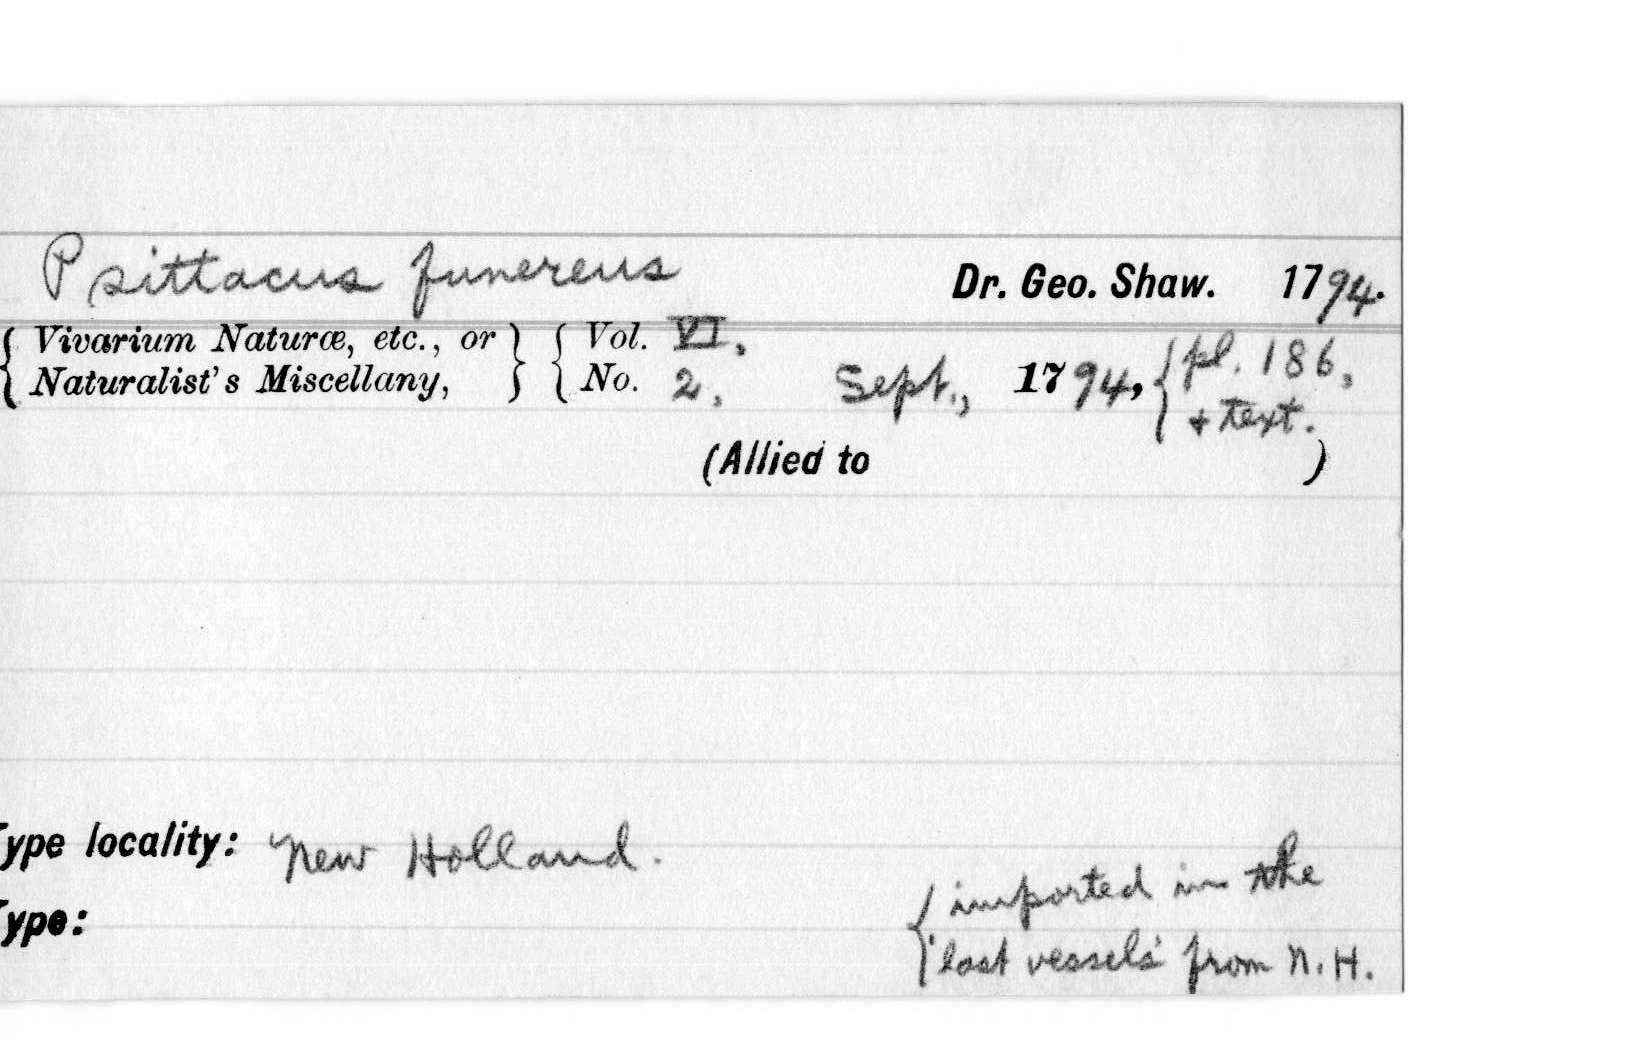 Psittacus funereus Dr. Geo. Shaw. 1794.
{ Vivarium Naturæ, etc., or } { Vol. VI,
{ Naturalist's Miscellany, } { No. 2, Sept., 1794, { pl. 186,
+ text.
(Allied to )
Type locality: New Holland.
{ imported in the
Type:
'last vessels' from N.H.